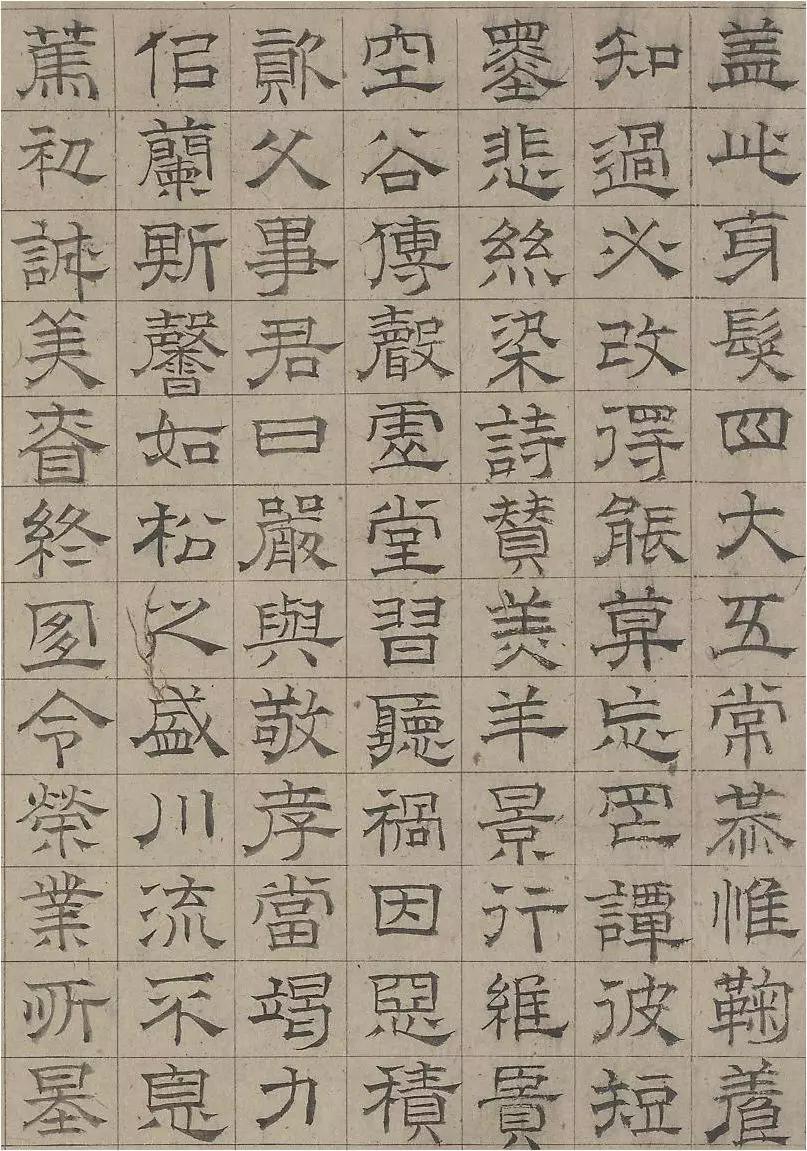 盖此身髮四大五常恭惟鞠養
知過必改得能莫忘罔譚彼短
墨悲絲染詩贊羔羊景行維賢
空谷傳聲虛堂習聽禍因惡積
資父事君曰嚴與敬孝當竭力
佀蘭斯馨如松之盛川流不息
篤初誠美昚終宜令榮業所基